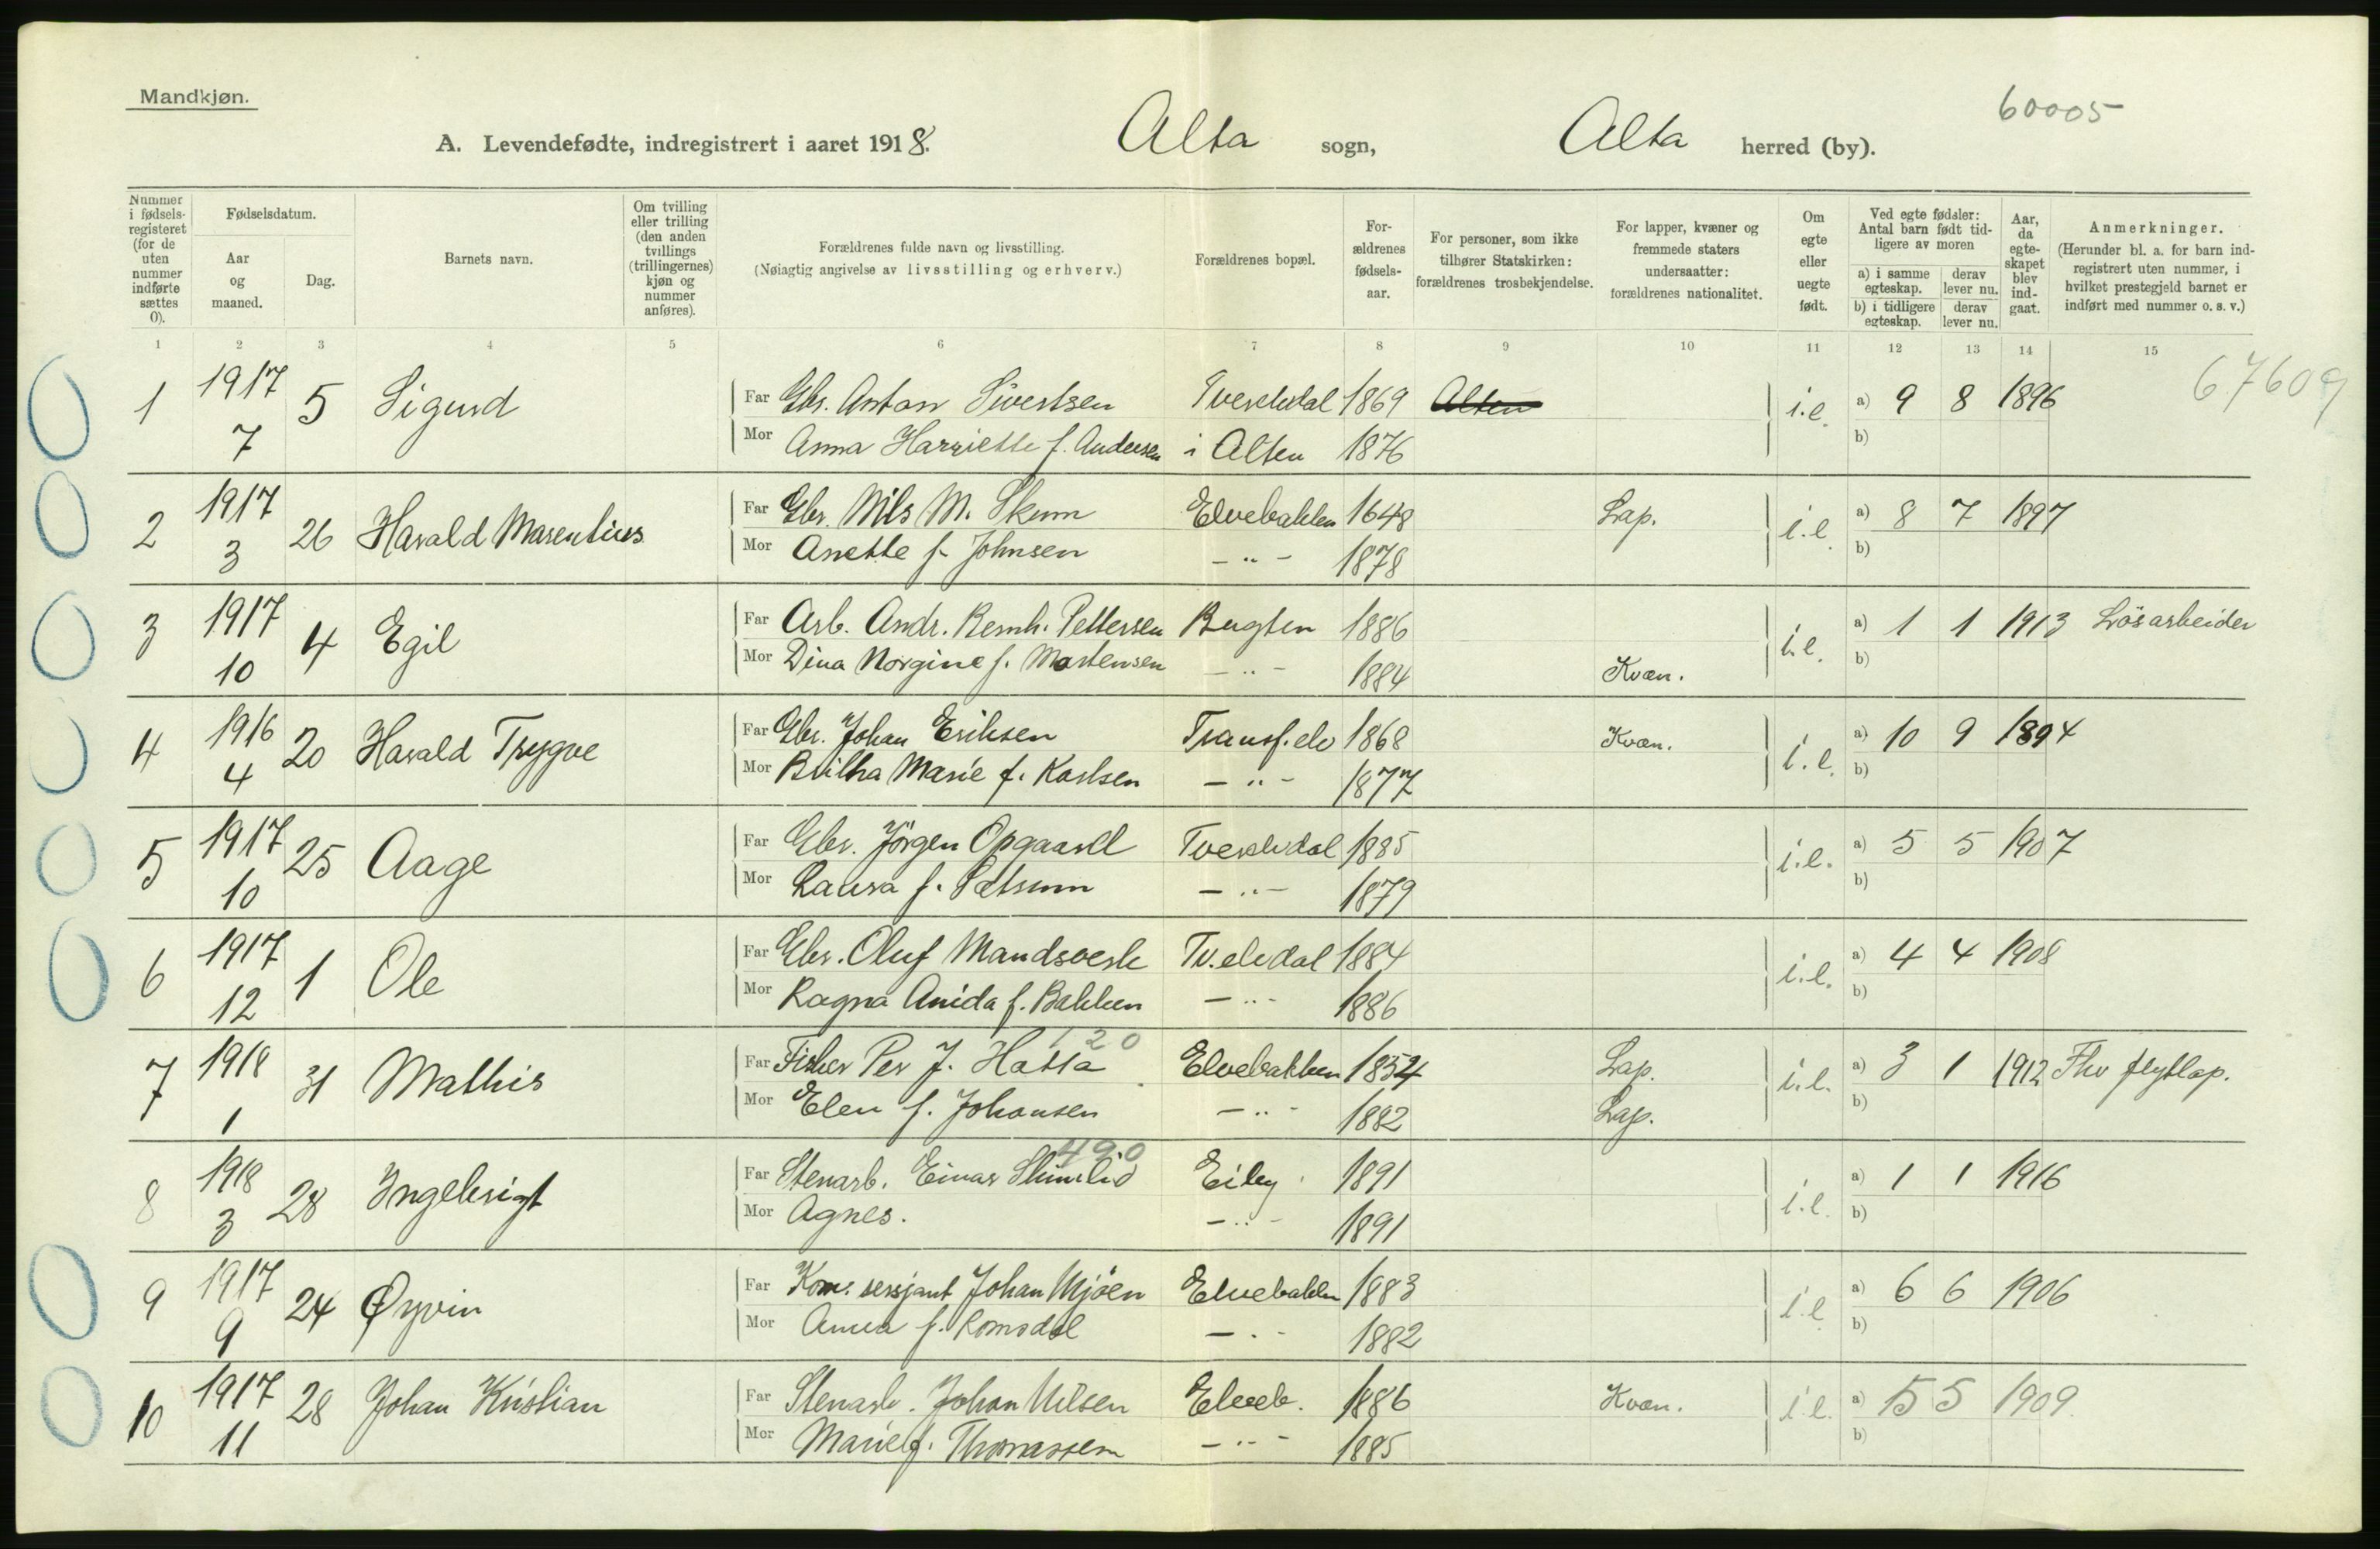 Mandkjøn.
60005
A. Levendefødte, indregistrert i aaret 1918. Alta sogn, Alta herred (by).
Nummer i fødselsregisteret (for de uten nummer indførte sættes 0).
Fødselsdatum.
Aar og maaned.
Dag.
Barnets navn.
Om tvilling eller trilling (den anden tvillings (trillingernes) kjøn og nummer anføres).
Forældrenes fulde navn og livsstilling.
(Nøiagtig angivelse av livsstilling og erhverv.)
Forældrenes bopæl.
Forældrenes fødselsaar.
For personer, som ikke tilhører Statskirken: forældrenes trosbekjendelse.
For lapper, kvæner og fremmede staters undersaatter: forældrenes nationalitet.
Om egte eller uegte født.
Ved egte fødsler: Antal barn født tidligere av moren
a) i samme egteskap. derav lever nu.
b) i tidligere egteskap. derav lever nu.
Aar, da egteskapet blev indgaat.
Anmerkninger.
(Herunder bl. a. for barn indregistrert uten nummer, i hvilket prestegjeld barnet er indført med nummer o. s. v.)
1 2 3 4 5 6 7 8 9 10 11 12 13 14 15
67609
1 1917 5 Sigurd Far Gbr. Anton Sivertsen Tverelvdal 1869 Alten i.e. a) 9 8 1896
7 Mor Anna Harriette f. Andersen i Alten 1876 b)
2 1917 26 Harald Marentius Far Gbr. Nils M. Skum Elvebakken 1648 Lap. i.e. a) 8 7 1897
3 Mor Anette f. Johnsen - " - 1878 b)
3 1917 4 Egil Far Arb. Andr. Bernh. Pettersen Bugten 1886 i.e. a) 1 1 1913 Lösarbeider
10 Mor Dina Norgine f. Mortensen - " - 1884 Kvæn. b)
4 1916 20 Harald Trygve Far Gbr. Johan Eriksen Transf.elv 1868 Kvæn. i.e. a) 10 9 1894
4 Mor Marie f. Karlsen - " - 1877 b)
5 1917 25 Aage Far Gbr. Jörgen Opgaard Tverelvdal 1885 i.e. a) 5 5 1907
10 Mor Laura f. - " - 1879 b)
6 1917 1 Ole Far Gbr. Oluf Mandsverk Tv.elvdal 1884 i.e. a) 4 4 1908
12 Mor Ragna Anida f. Bakken - " - 1886 b)
120
7 1918 31 Mathis Far Fisker Per J. Hætta Elvebakken 1854 Lap. i.e. a) 3 1 1912 Fhv flytlap.
1 Mor Elen f. Johansen - " - 1882 Lap. b)
490
8 1918 28 Ingebrigt Far Stenarb. Einar Eiby 1891 i.e. a) 1 1 1916
3 Mor Agnes. - " - 1891 b)
9 1917 24 Øyvin Far Kom. sersjant Johan Mjöen Elvebakken 1883 i.e. a) 6 6 1906
9 Mor Anna f. Romsdal - " - 1882 b)
10 1917 28 Johan Kristian Far Stenarb. Johan Nilsen Elveb. 1886 Kvæn. i.e. a) 5 5 1909.
11 Mor Marie f. Thomassen - " - 1885 b)